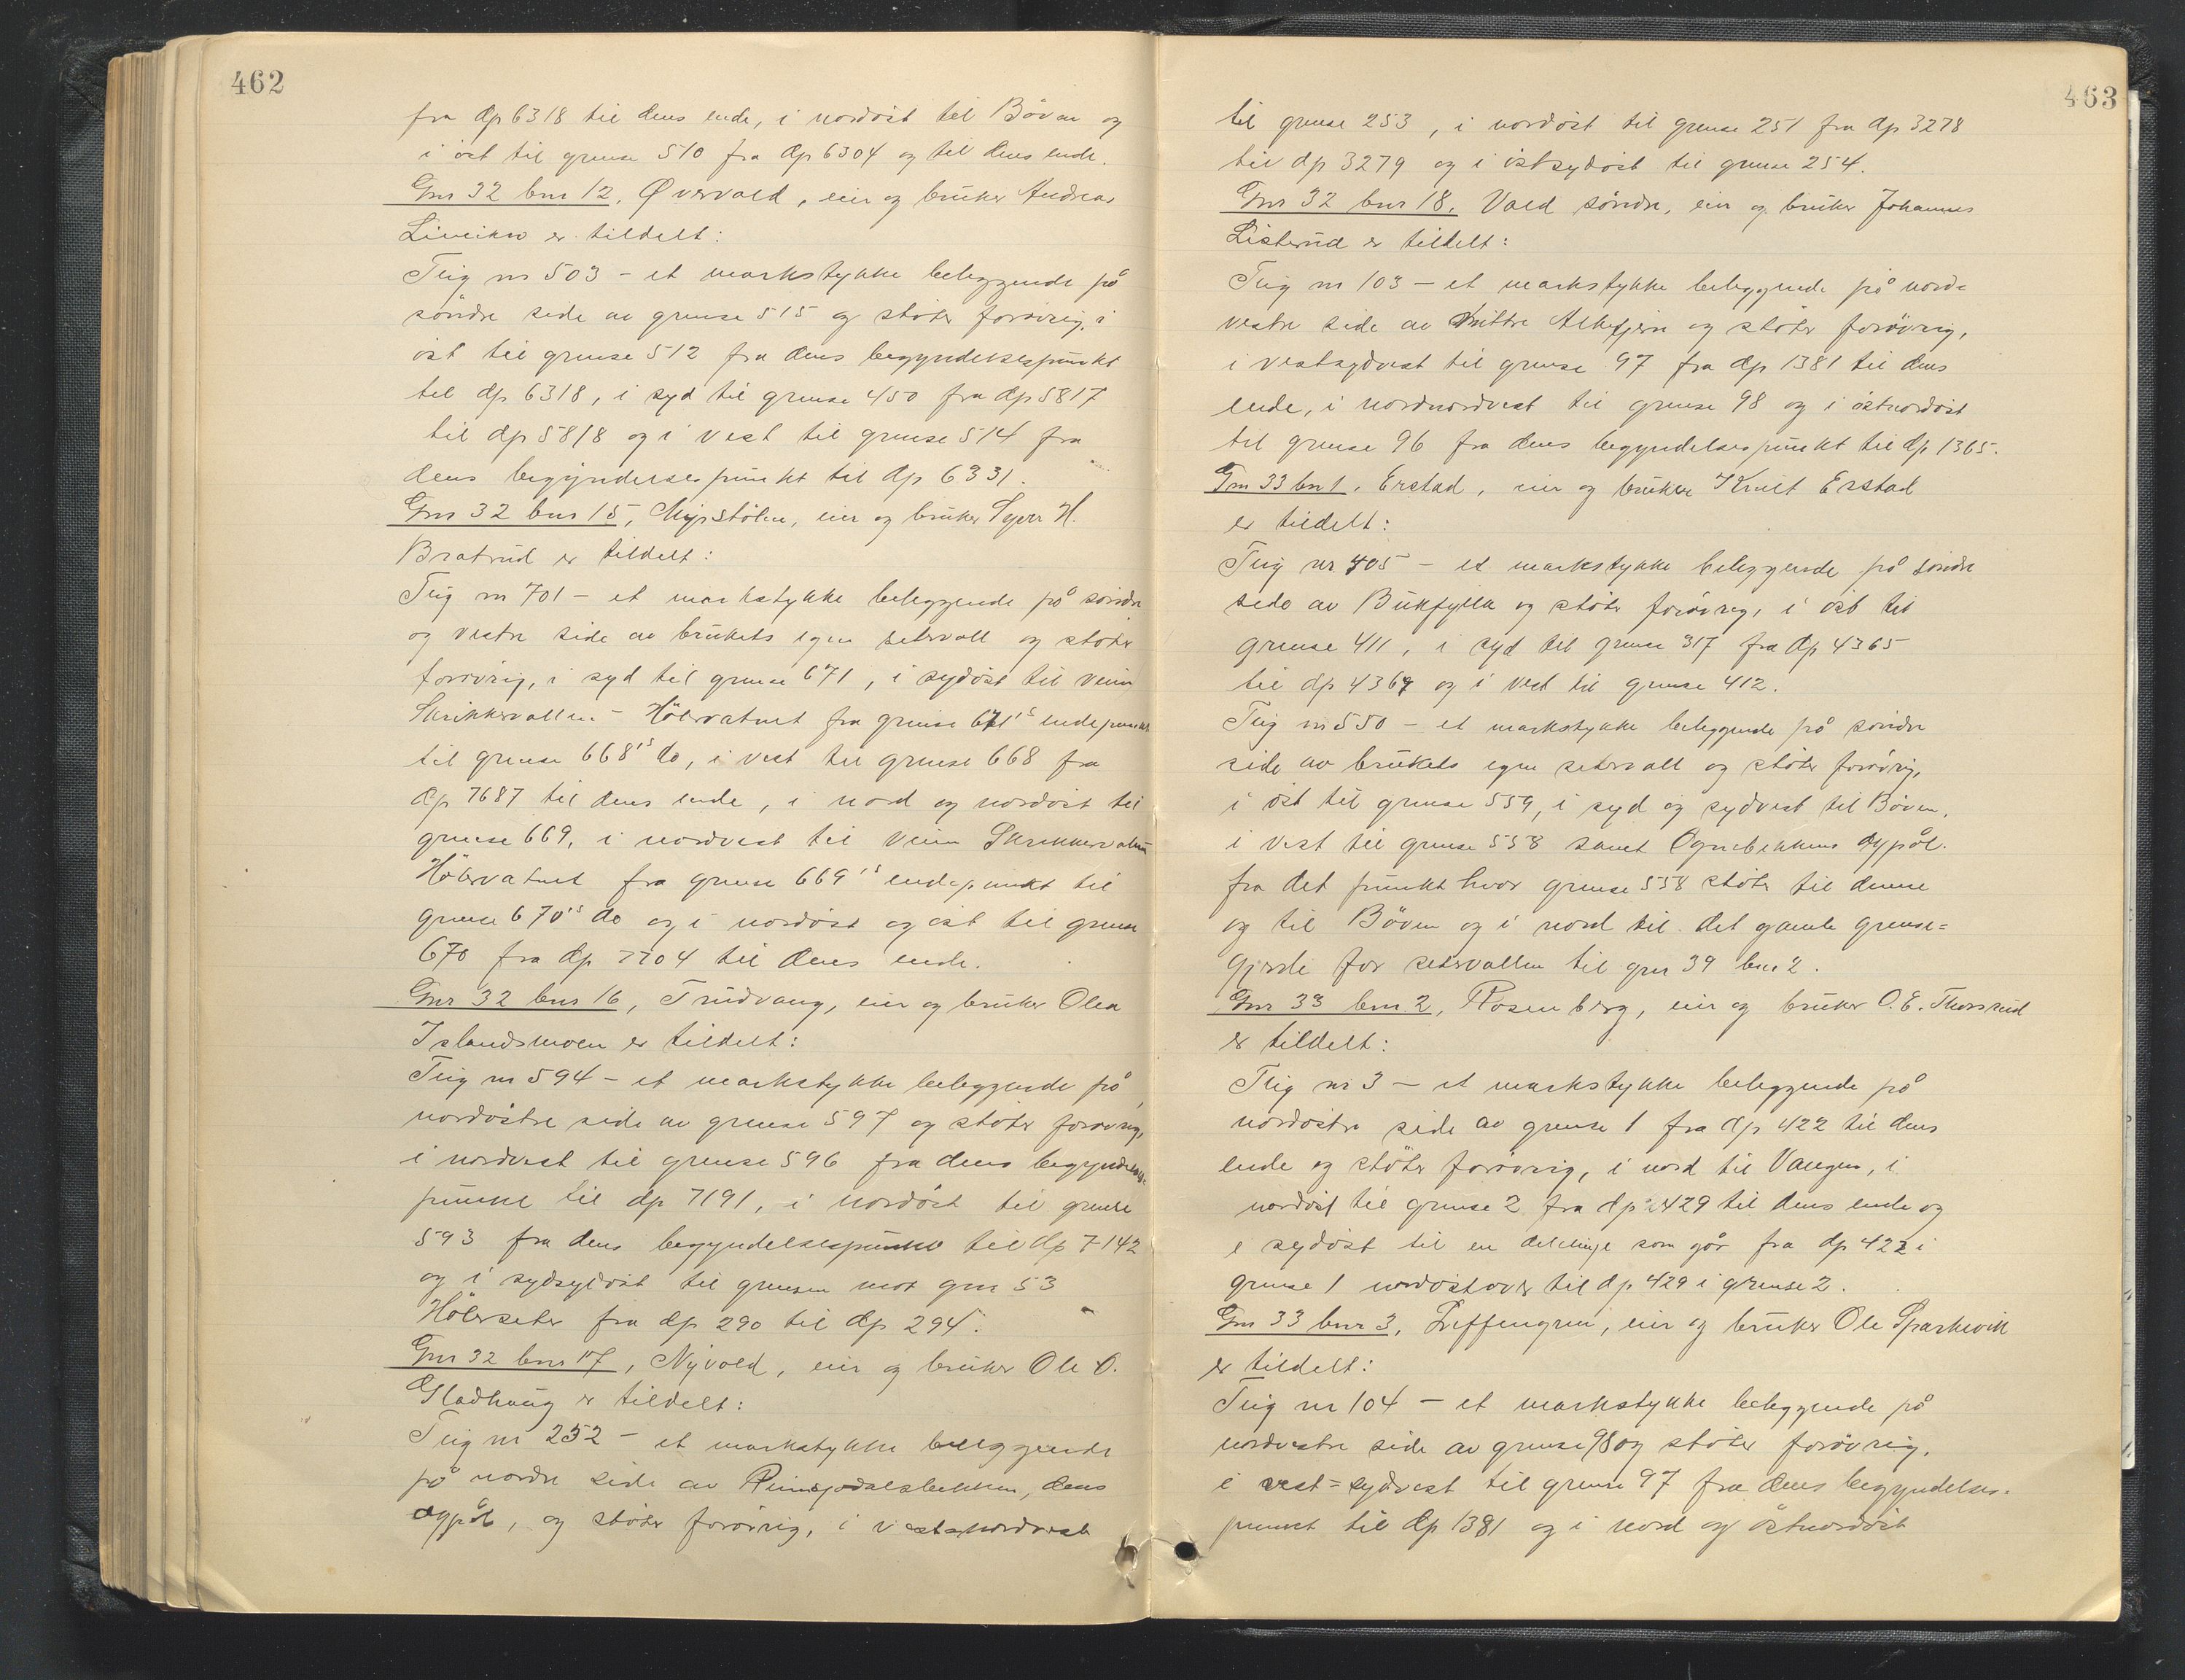 462
fra dp 6318 til dens ende, i nordöst til Böven og
i öst til grense 510 fra dp 6304 og til dens ende.
Gnr 32 bnr 12, Øvervold, eier og bruker Andreas
Liveikro er tildelt:
Teig nr 503 - et markstykke beliggende på
söndre side av grense 515 og stöter forövrig, i
öst til grense 512 fra dens begyndelsespunkt
til dp 6318, i syd til grense 450 fra dp 5817
til dp 5818 og i vest til grense 514 fra
dens begyndelsespunkt til dp 6331.
Gnr 32 bnr 15, Myrstölen, eier og bruker Syver H.
Bratrud er tildelt:
Teig nr 701 - et markstykke beliggende på söndre
og vestre side av brukets egen setervoll og stöter
forövrig, i syd til grense 671, i sydöst til veien
Skrikkervollen - Hölervatnet fra grense 671's endepunkt
til grense 668's do, i vest til grense 668 fra
dp 7687 til dens ende, i nord og nordöst til
grense 669, i nordvest til veien Skrikkervollen
Hölervatnet fra grense 669's endepunkt til
grense 670's do og i nordöst og öst til grense
670 fra dp 7704 til dens ende.
Gnr 32 bnr 16, Trudvang, eier og bruker Olea
Islandsmoen er tildelt:
Teig nr 594 - et markstykke beliggende på
nordöstre side av grense 597 og stöter forövrig,
i nordvest til grense 596 fra dens begyndelses-
punkt til dp 7191, i nordöst til grense
593 fra dens begyndelsespunkt til dp 7142
og i sydsydöst til grensen mot gnr 53
Hölerseter fra dp 290 til dp 294.
Gnr 32 bnr 17, Nyvold, eier og bruker Ole O.
Gladhaug er tildelt:
Teig nr 252 - et markstykke beliggende
på nordre side av dens
dypål, og stöter forövrig, i vestnordvest
463
til grense 253, i nordöst til grense 251 fra dp 3278
til dp 3279 og i östsydöst til grense 254.
Gnr 32 bnr 18, Vold söndre, eier og bruker Johannes
Listerud er tildelt:
Teig nr 103 - et markstykke beliggende på nord=
vestre side av Mittre Alketjern og stöter forövrig,
i vestsydvest til grense 97 fra dp 1381 til dens
ende, i nordnordvest til grense 98 og i östnordöst
til grense 96 fra dens begyndelsespunkt til dp 1365.
Gnr 33 bnr 1, Erstad, eier og bruker Knut Erstad
er tildelt:
Teig nr 405 - et markstykke beliggende på söndre
side av Bukfjell og stöter forövrig, i öst til
grense 411, i syd til grense 317 fra dp 4365
til dp 4367 og i vest til grense 412.
Teig nr 550 - et markstykke beliggende på söndre
side av brukets egen setervoll og stöter forövrig,
i öst til grense 559, i syd og sydvest til Böven,
i vest til grense 558 samt Ognebekkens dypål
fra det punkt hvor grense 558 stöter til denne
og til Böven og i nord til det gamle grense=
gjerde for setervollen til gnr 39 bnr 2.
Gnr 33 bnr 2, Rosenberg, eier og bruker O. E. Thorsrud
er tildelt:
Teig nr 3 - et markstykke beliggende på
nordöstre side av grense 1 fra dp 422 til dens
ende og stöter forövrig, i nord til Vangen, i
nordöst til grense 2 fra dp 429 til dens ende og
i sydöst til en delelinje som går fra dp 422 i
grense 1 nordöstover til dp 429 i grense 2.
Gnr 33 bnr 3, Leffengrin, eier og bruker Ole Sparkevik
er tildelt:
Teig nr 104 - et markstykke beliggende på
nordvestre side av grense 98 og stöter forövrig,
i vest=sydvest til grense 97 fra dens begyndelses=
punkt til dp 1381 og i nord og östnordöst